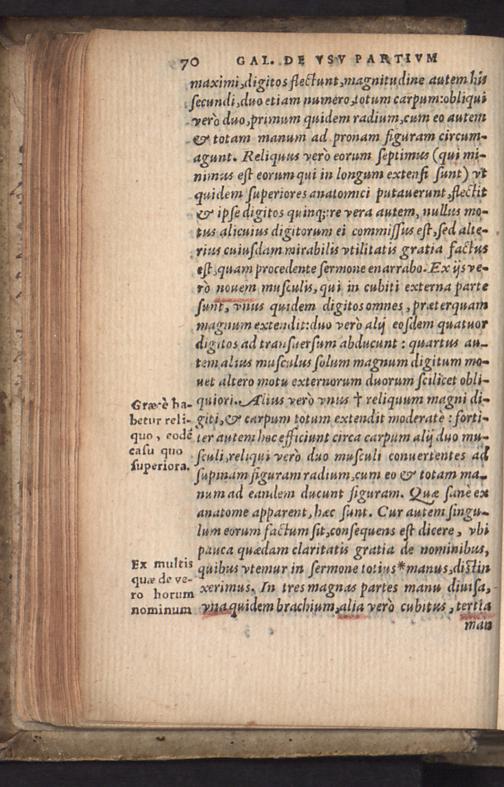 70 GAL. DE VSV PARTIVM
maximi, digitos flectunt, magnitudine autem his
secundi, duo etiam numero, totum carpum: obliqui
verò duo, primum quidem radium, cum eo autem
& totam manum ad pronam figuram circum-
agunt. Reliquus verò eorum septimus (qui mi-
nimus est eorum qui in longum extensi sunt) vt
quidem superiores anatomici putauerunt, flectit
& ipse digitos quinq;: re vera autem, nullus mo-
tus alicuius digitorum ei commissus est, sed alte-
rius cuiusdam mirabilis vtilitatis gratia factus
est, quam procedente sermone enarrabo. Ex ijs ve-
rò nouem musculis, qui in cubiti externa parte
sunt, vnus quidem digitos omnes, præterquam
magnum extendit: duo verò alij eosdem quatuor
digitos ad transuersum abducunt: quartus au-
tem alius musculus solum magnum digitum mo-
uet altero motu externorum duorum scilicet obli-
quiori. Alius verò vnus † reliquum magni di-
giti, & carpum totum extendit moderate: forti-
ter autem hoc efficiunt circa carpum alij duo mu-
sculi, reliqui verò duo musculi conuertentes ad
supinam figuram radium, cum eo & totam ma-
num ad eandem ducunt figuram. Quæ sane ex
anatome apparent, hæc sunt. Cur autem singu-
lum eorum factum sit, consequens est dicere, vbi
pauca quædam claritatis gratia de nominibus,
quibus vtemur in sermone totius * manus, distin
xerimus. In tres magnas partes manu diuisa,
vna quidem brachium, alia verò cubitus, tertia
man
Græcè ha-
betur reli-
quo, eodē
casu quo
superiora.
Ex multis
quæ de ve-
ro horum
nominum